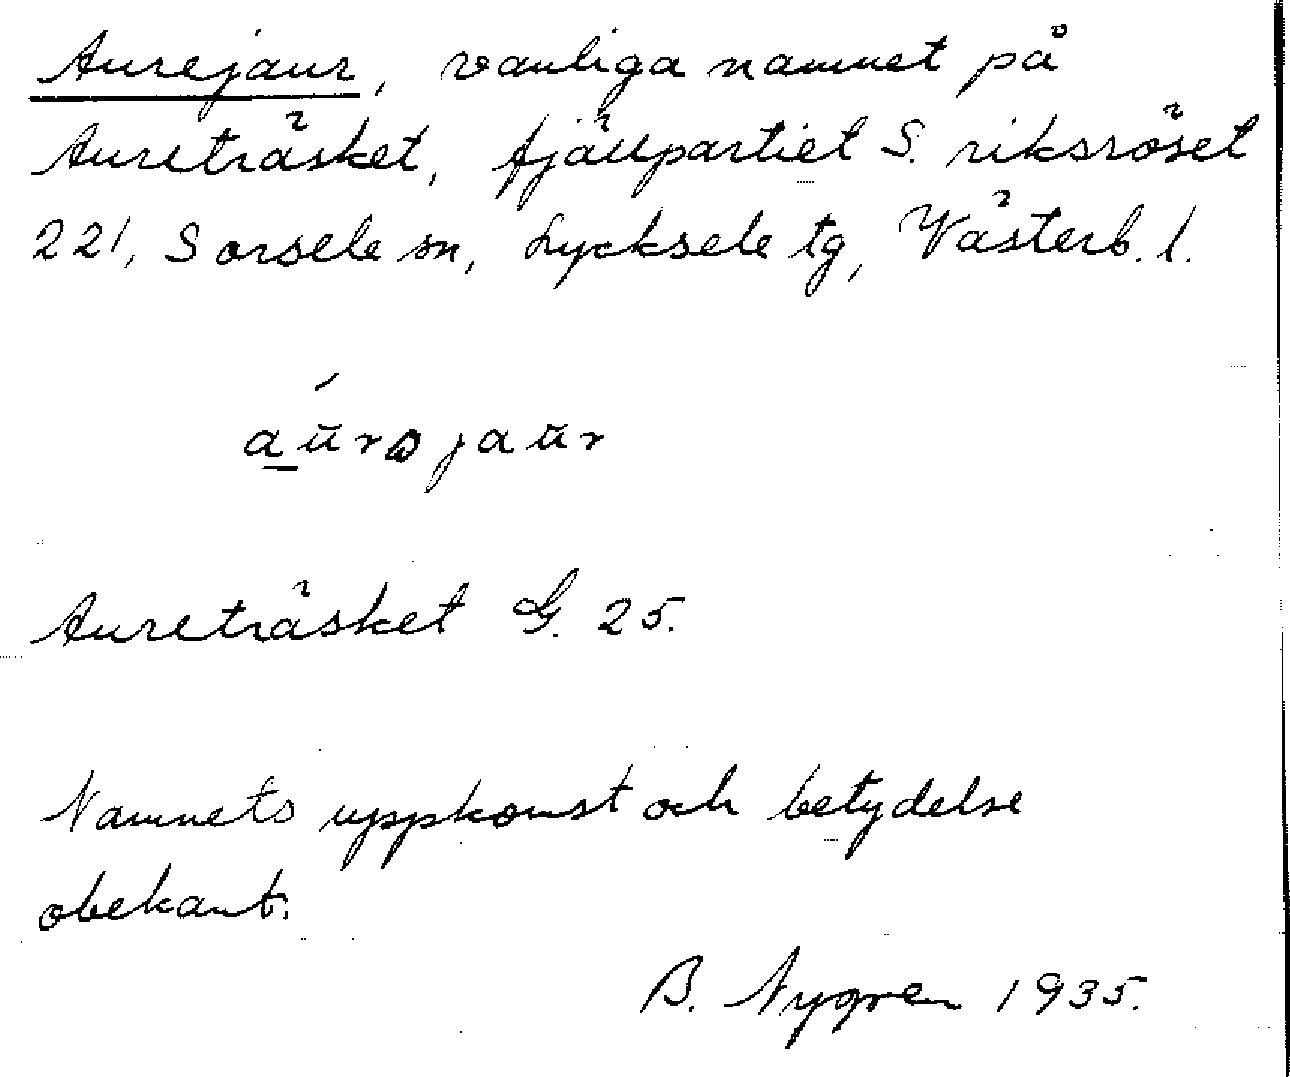 Aurejaur, vanliga namnet på
Aureträsket, fjällpartiet S. riksröset
221, Sorsele sn, Lycksele tg, Västerb. l.
Aureträsket G. 25.
Namnets uppkomst och betydelse
obekant.
B. Nygren 1935.